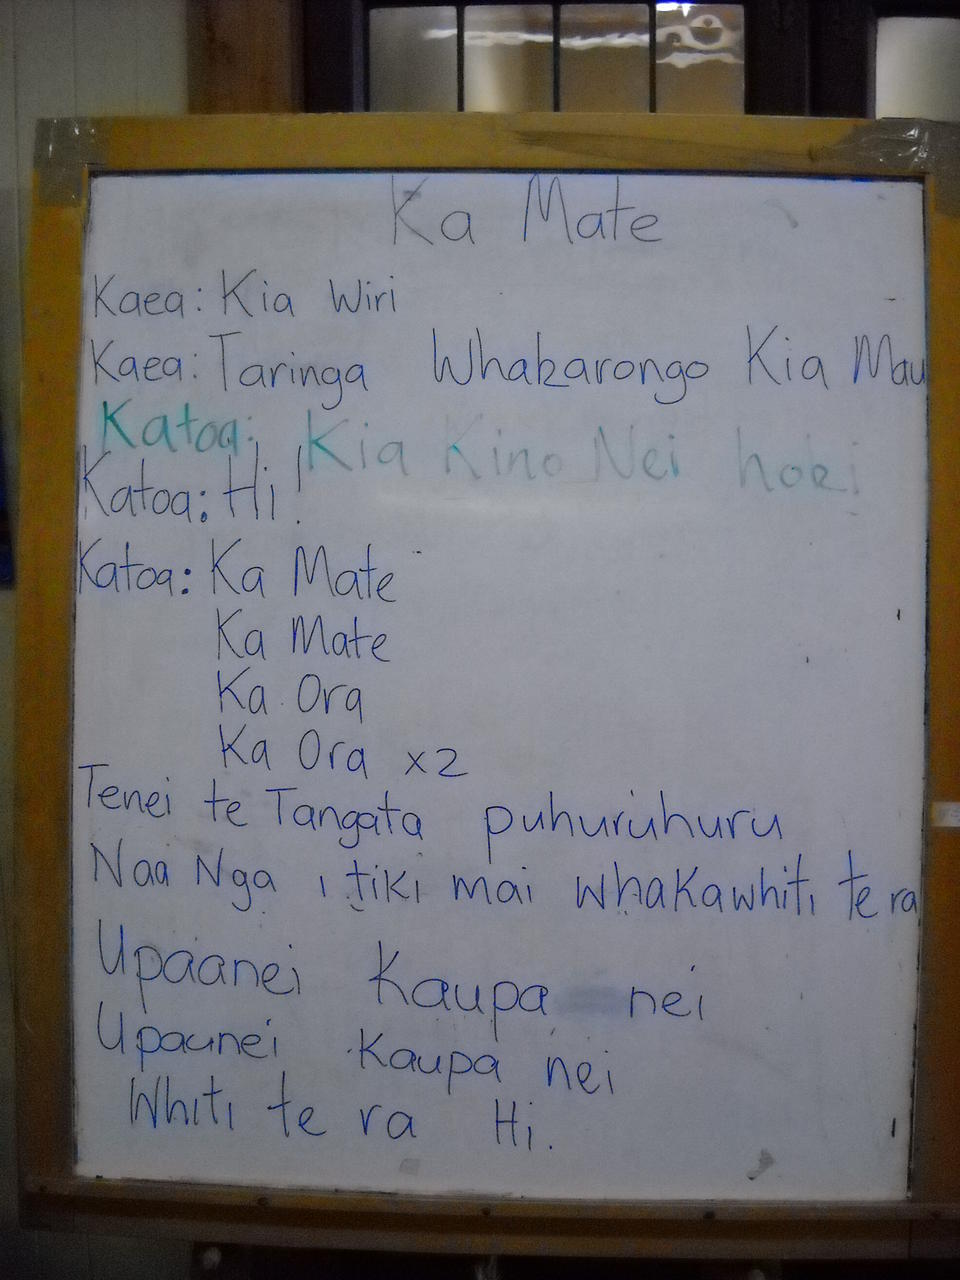 Ka Mate
Kaea: Kia Wiri
Kaea: Taringa Whakarongo Kia Mau
Katoa: Kia Kino Nei hoki
Katoa: Hi!
Katoa: Ka Mate
Ka Mate
Ka Ora
Ka Ora x2
Tenei te Tangata puhuruhuru
Naa Nga i tiki mai whakawhiti te ra
Upaanei Kaupa nei
Upaunei Kaupa nei
Whiti te ra Hi.